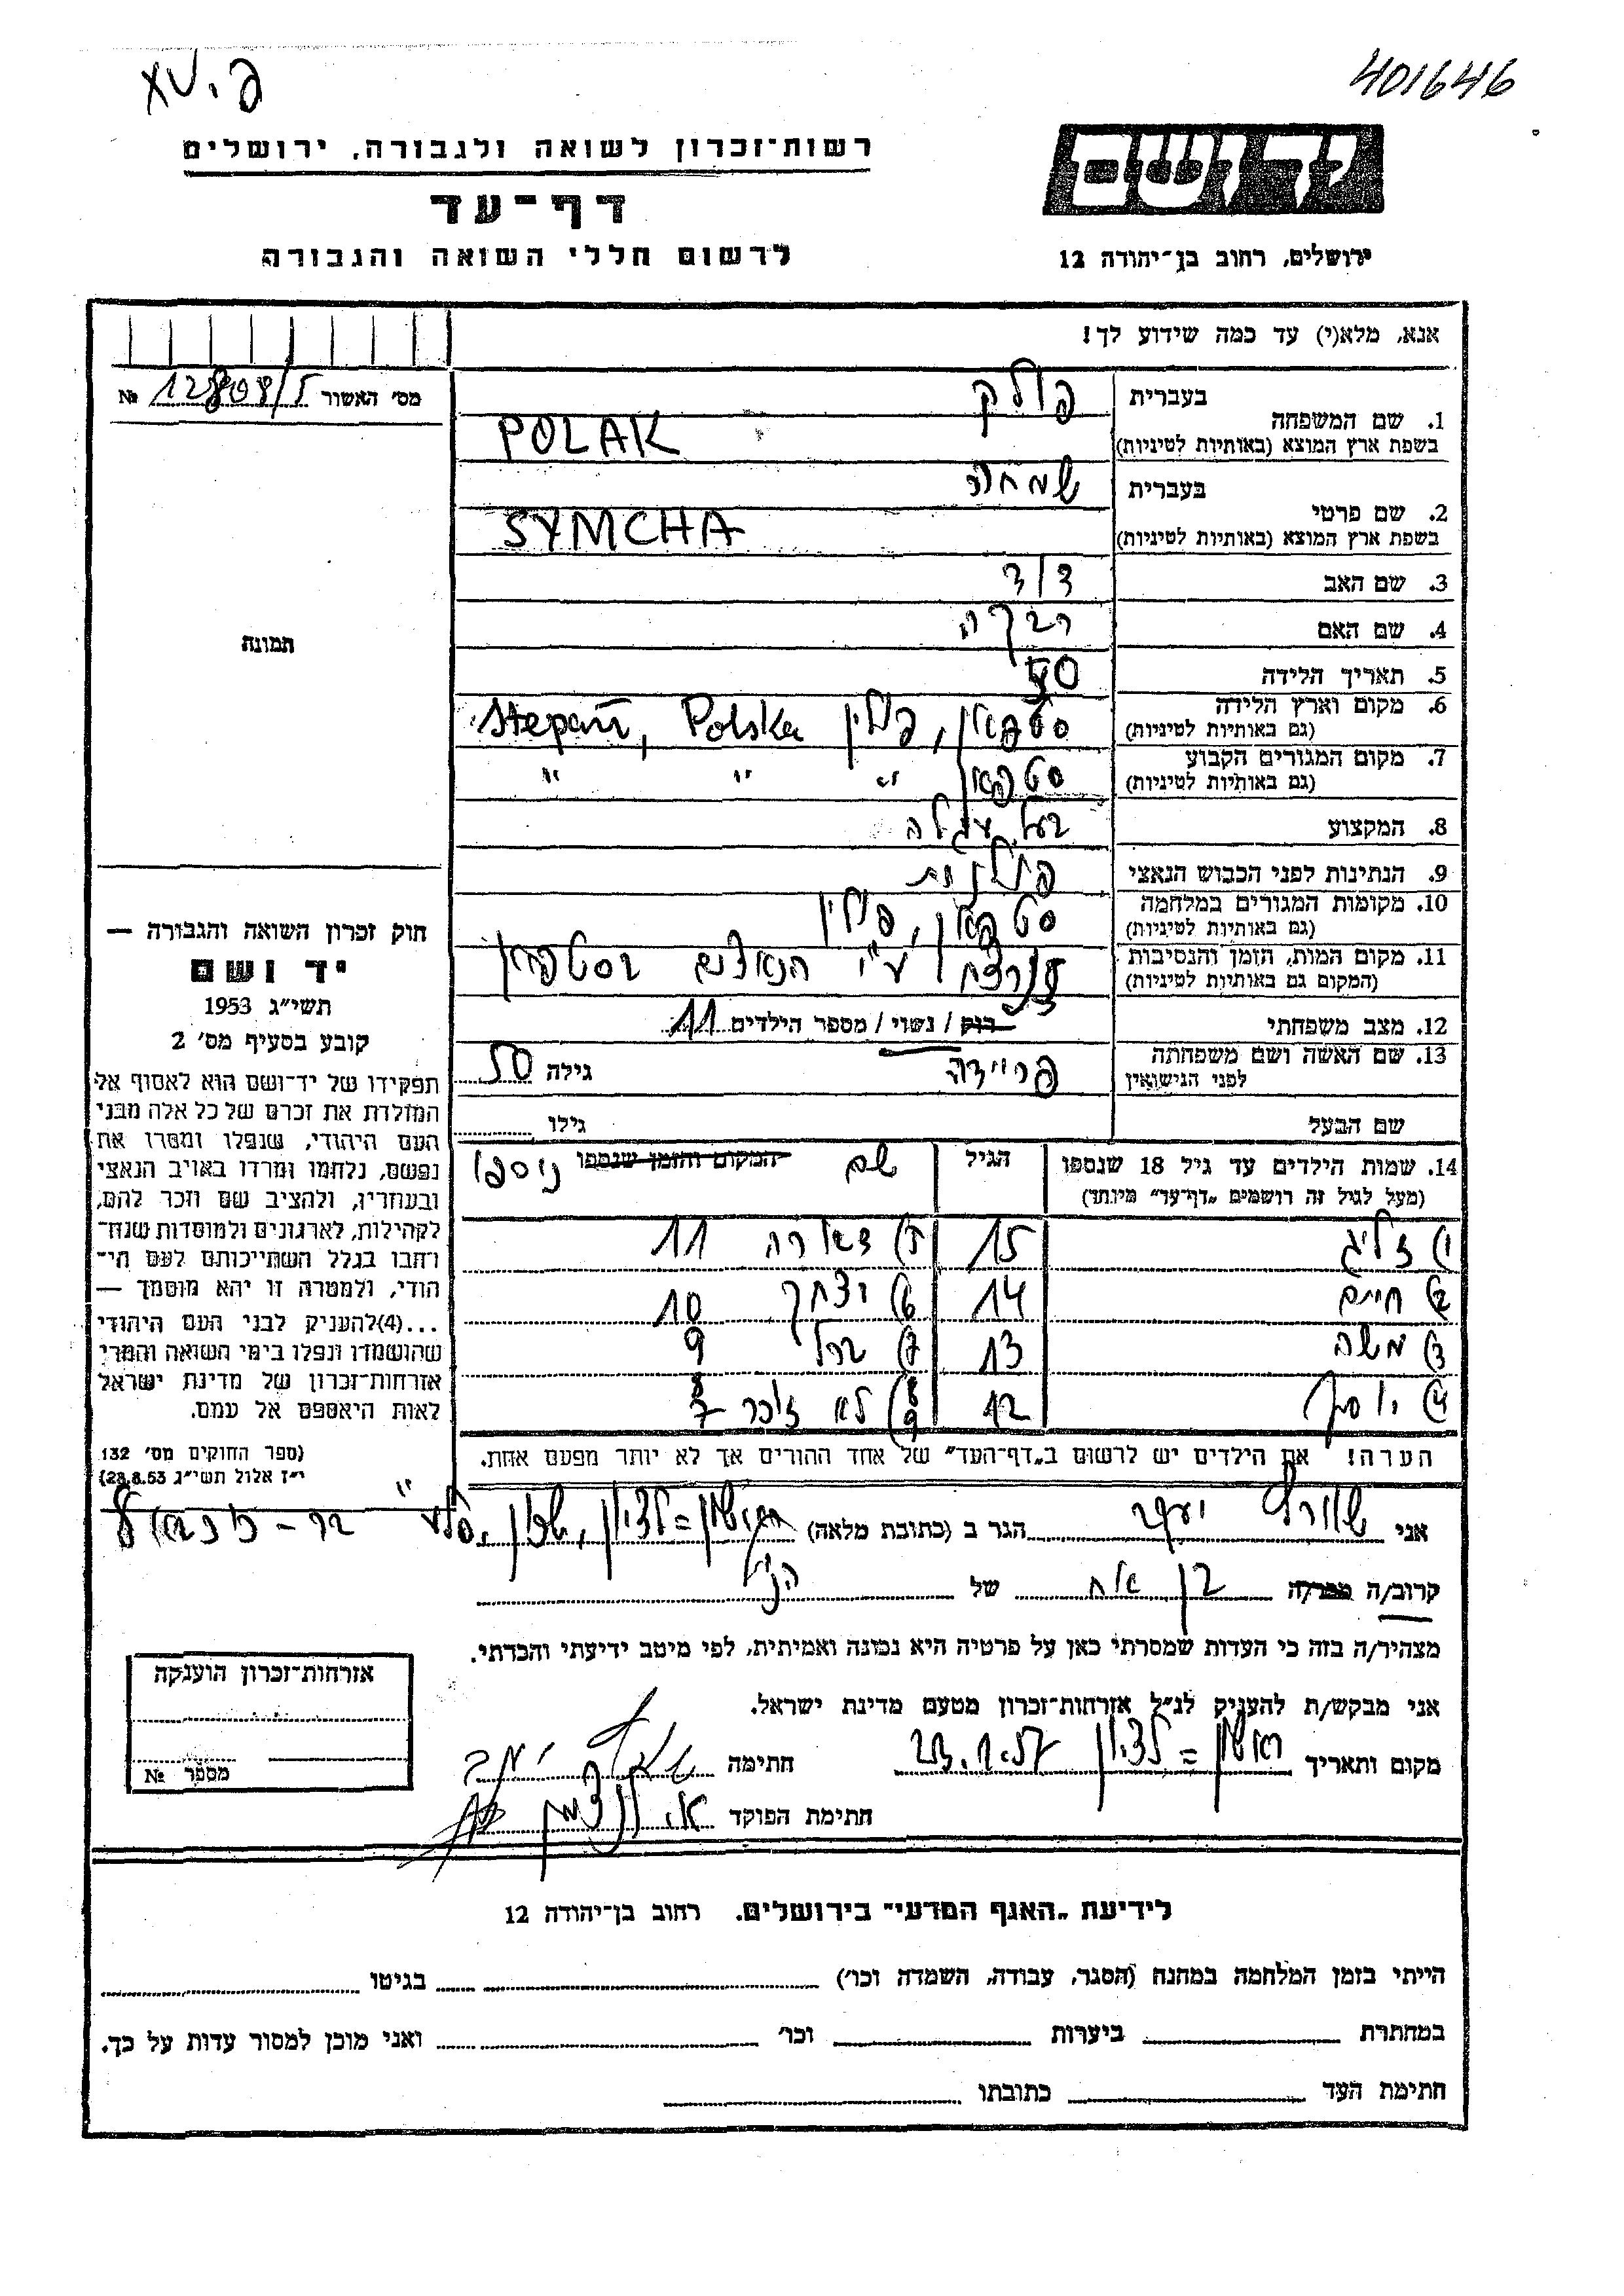 פ. XV
401646
רשות־זכרון לשואה ולגבורה, ירושלים
דף־עד
לרשום חללי השואה והגבורה
יד ושם
ירושלים, רחוב בן־יהודה 12
אנא, מלא(י) עד כמה שידוע לך!
מס׳ האשור 12808/5 №
1. שם המשפחה
בעברית פולק
בשפת ארץ המוצא (באותיות לטיניות) POLAK
2. שם פרטי
בעברית שמחה
בשפת ארץ המוצא (באותיות לטיניות) SYMCHA
3. שם האב דוד
4. שם האם רבקה
5. תאריך הלידה 50
6. מקום וארץ הלידה (גם באותיות לטיניות) סטפאן, פולין Stepań, Polska
7. מקום המגורים הקבוע (גם באותיות לטיניות) סטפאן " " "
8. המקצוע בעל עגלה
9. הנתינות לפני הכבוש הנאצי פולנית
10. מקומות המגורים במלחמה (גם באותיות לטיניות) סטפאן, פולין
11. מקום המות, הזמן והנסיבות (המקום גם באותיות לטיניות) נרצח ע"י הנאצים בסטפאן
12. מצב משפחתי רוק / נשוי / מספר הילדים 11
13. שם האשה ושם משפחתה לפני הנישואין פריידה גילה 50
שם הבעל גילו
14. שמות הילדים עד גיל 18 שנספו (מעל לגיל זה רושמים „דף־עד״ מיוחד) הגיל המקום והזמן שנספו שם ניספו
1) זליג 15 5) דבורה 11
2) חיים 14 6) יצחק 10
3) משה 13 7) ברל 9
4) יוסף 12 8) לא זוכר 8
9) 7
הערה! את הילדים יש לרשום ב„דף־העד״ של אחד ההורים אך לא יותר מפעם אחת.
תמונה
חוק זכרון השואה והגבורה —
יד ושם
תשי״ג 1953
קובע בסעיף מס׳ 2
תפקידו של יד־ושם הוא לאסוף אל
המולדת את זכרם של כל אלה מבני
העם היהודי, שנפלו ומסרו את
נפשם, נלחמו ומרדו באויב הנאצי
ובעוזריו, ולהציב שם וזכר להם,
לקהילות, לארגונים ולמוסדות שנח־
רחבו בגלל השתייכותם לעם הי־
הודי, ולמטרה זו יהא מוסמך —
...(4)להעניק לבני העם היהודי
שהושמדו ונפלו בימי השואה והמרי
אזרחות־זכרון של מדינת ישראל
לאות היאספם אל עמם.
(ספר החוקים מס׳ 132
י״ז אלול תשי״ג 28.8.53)
אני יעקב הגר ב (כתובת מלאה) ראשון=לציון, שכון
קרוב/ה מכר/ה בן אח של הנ"ל
מצהיר/ה בזה כי העדות שמסרתי כאן על פרטיה היא נכונה ואמיתית, לפי מיטב ידיעתי והכרתי.
אני מבקש/ת להעניק לנ״ל אזרחות־זכרון מטעם מדינת ישראל.
מקום ותאריך ראשון=לציון 23.1.57 חתימה
חתימת הפוקד
אזרחות־זכרון הוענקה
מספר №
לידיעת „האגף המדעי״ בירושלים. רחוב בן־יהודה 12
הייתי בזמן המלחמה במחנה (הסגר, עבודה, השמדה וכו׳) בגיטו
במחתרת ביערות וכו׳ ואני מוכן למסור עדות על כך.
חתימת העד כתובתו